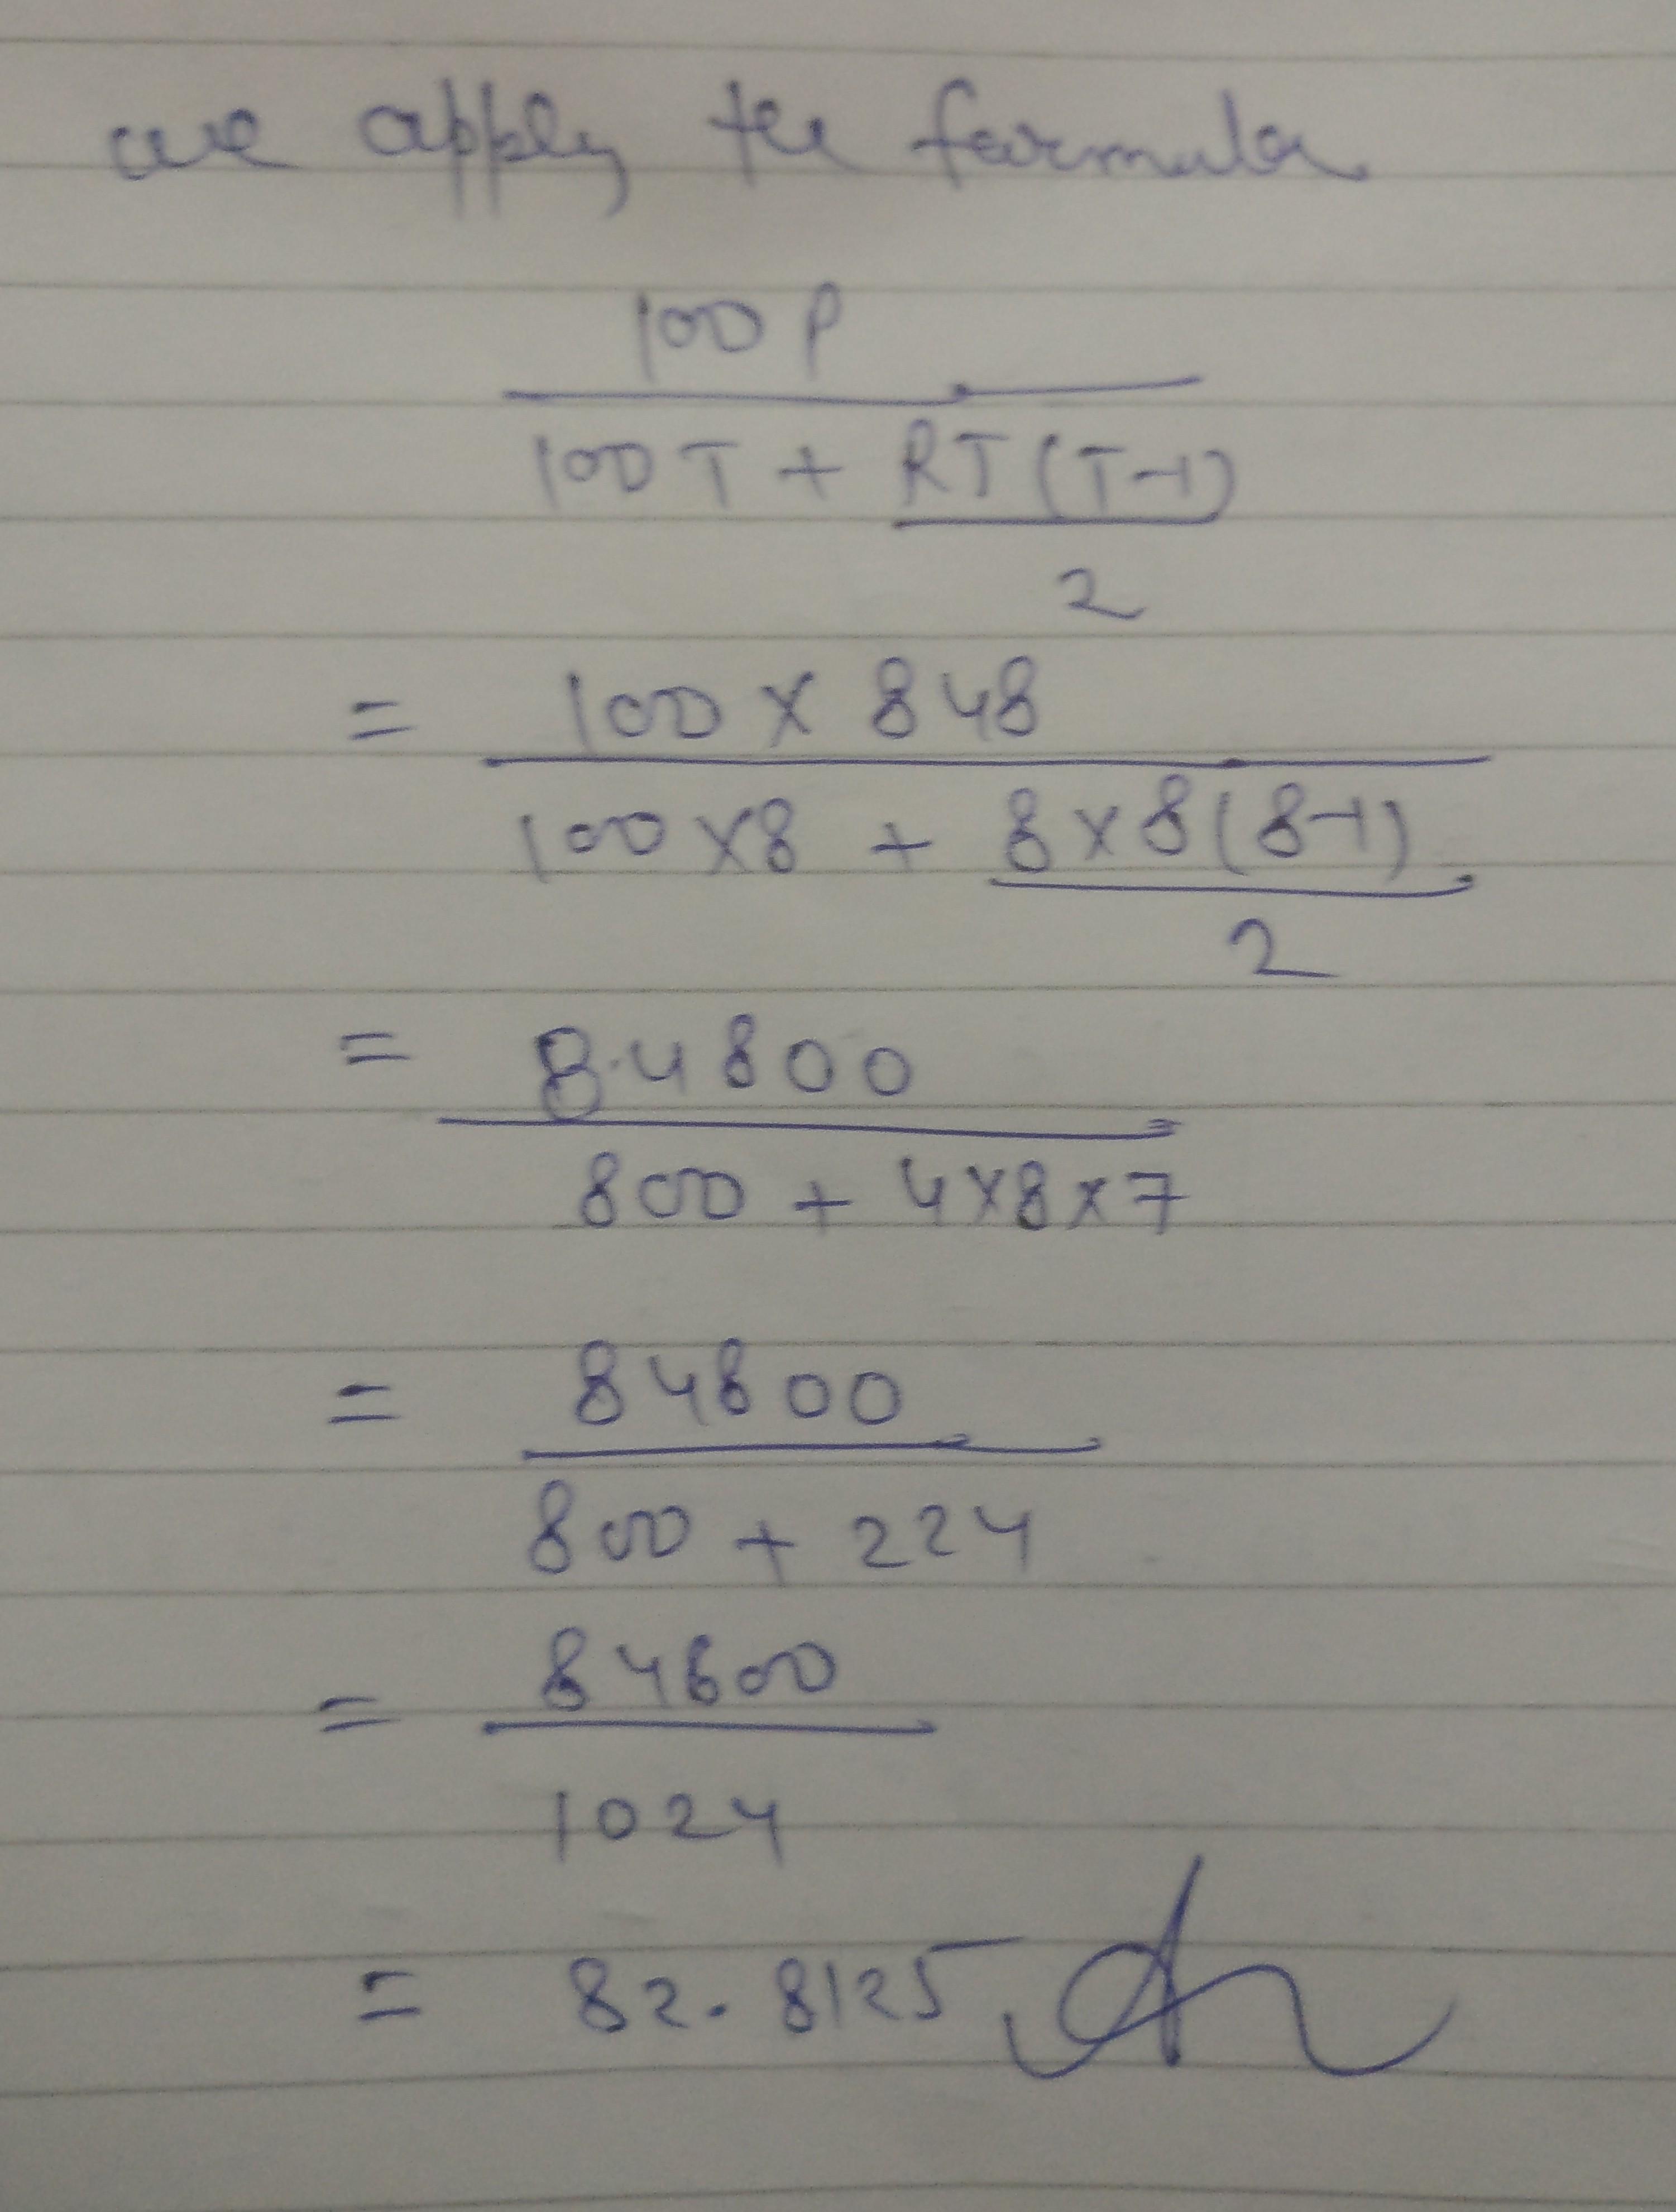 we apply the formula
100 P
100 T + RT (T-1)
2
= 100 x 848
100 x 8 + 8 x 8 (8-1)
2
= 84800
800 + 4 x 8 x 7
= 84800
800 + 224
= 84800
1024
= 82.8125